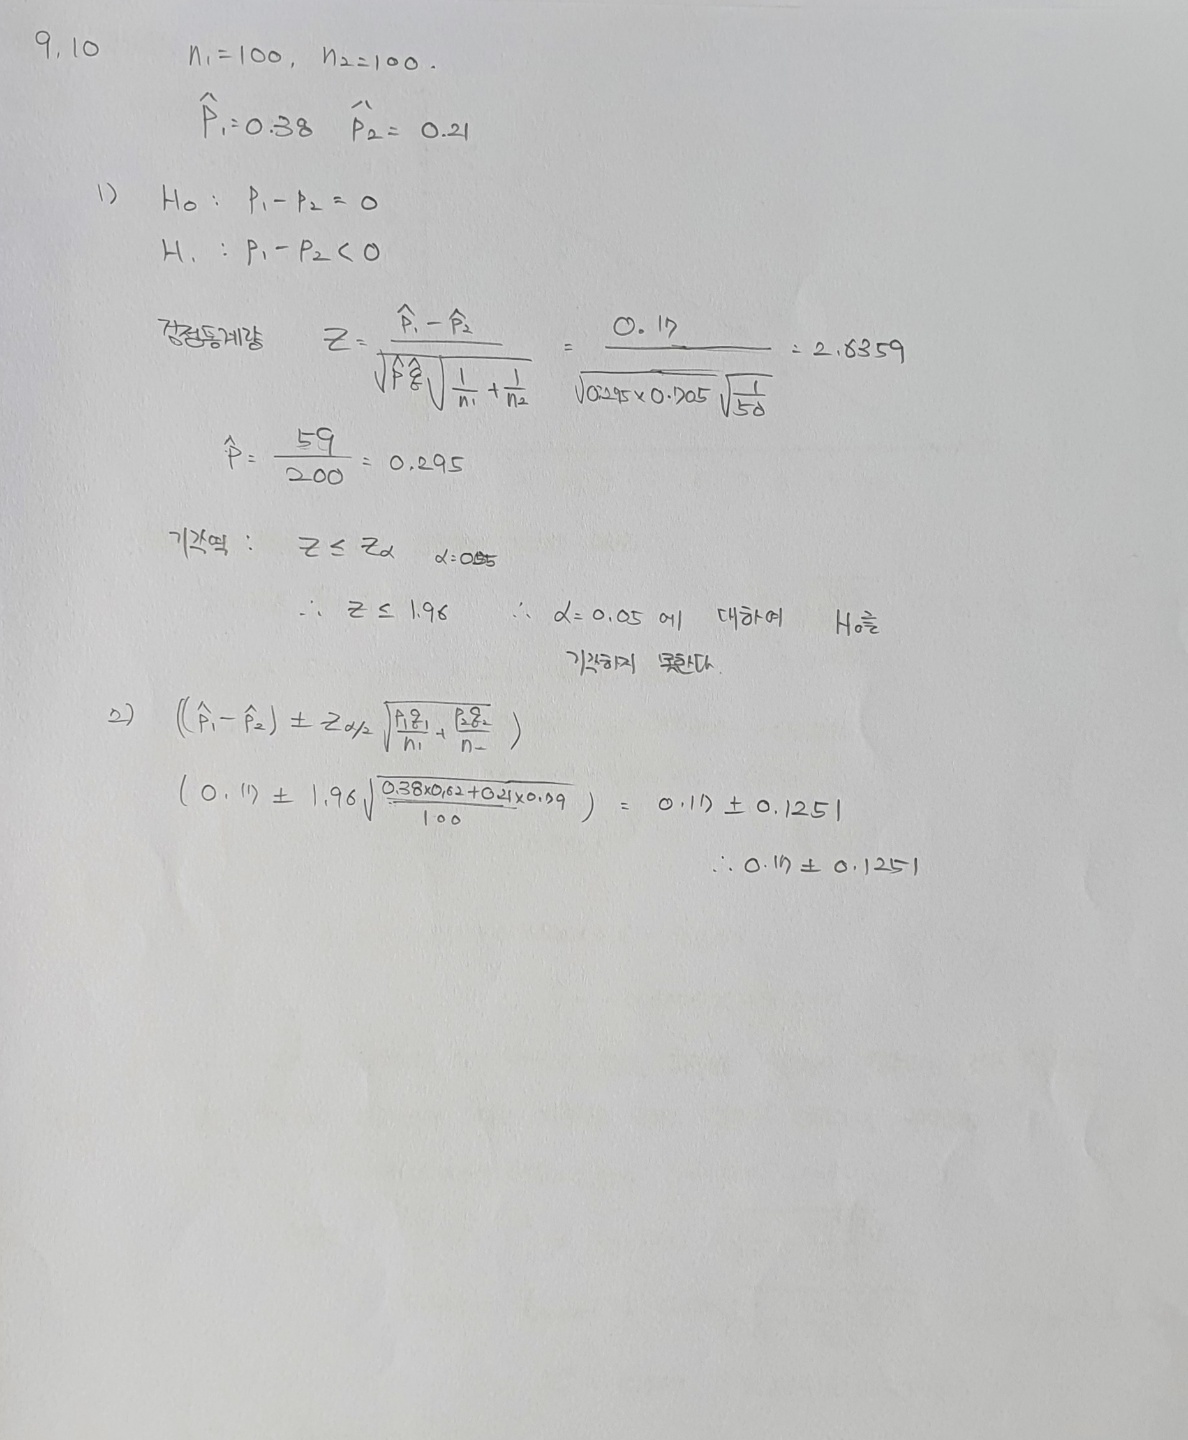 9.10 n₁=100, n₂=100.
p̂₁=0.38 p̂₂= 0.21
1) H₀ : p₁-p₂=0
H₁ : p₁-p₂<0
검정통계량 Z= (p̂₁-p̂₂)/(√(p̂q̂) √(1/n₁+1/n₂)) = 0.17/(√(0.295×0.705) √(1/50)) = 2.6359
p̂= 59/200 = 0.295
기각역 : Z≤Zα α=0.05
∴ Z≤1.96 ∴ α=0.05 에 대하여 H₀를
기각하지 못한다.
2) ((p̂₁-p̂₂) ± Zα/₂ √(p₁q₁/n₁ + p₂q₂/n₋))
(0.17 ± 1.96 √((0.38×0.62+0.21×0.79)/100)) = 0.17 ± 0.1251
∴ 0.17 ± 0.1251